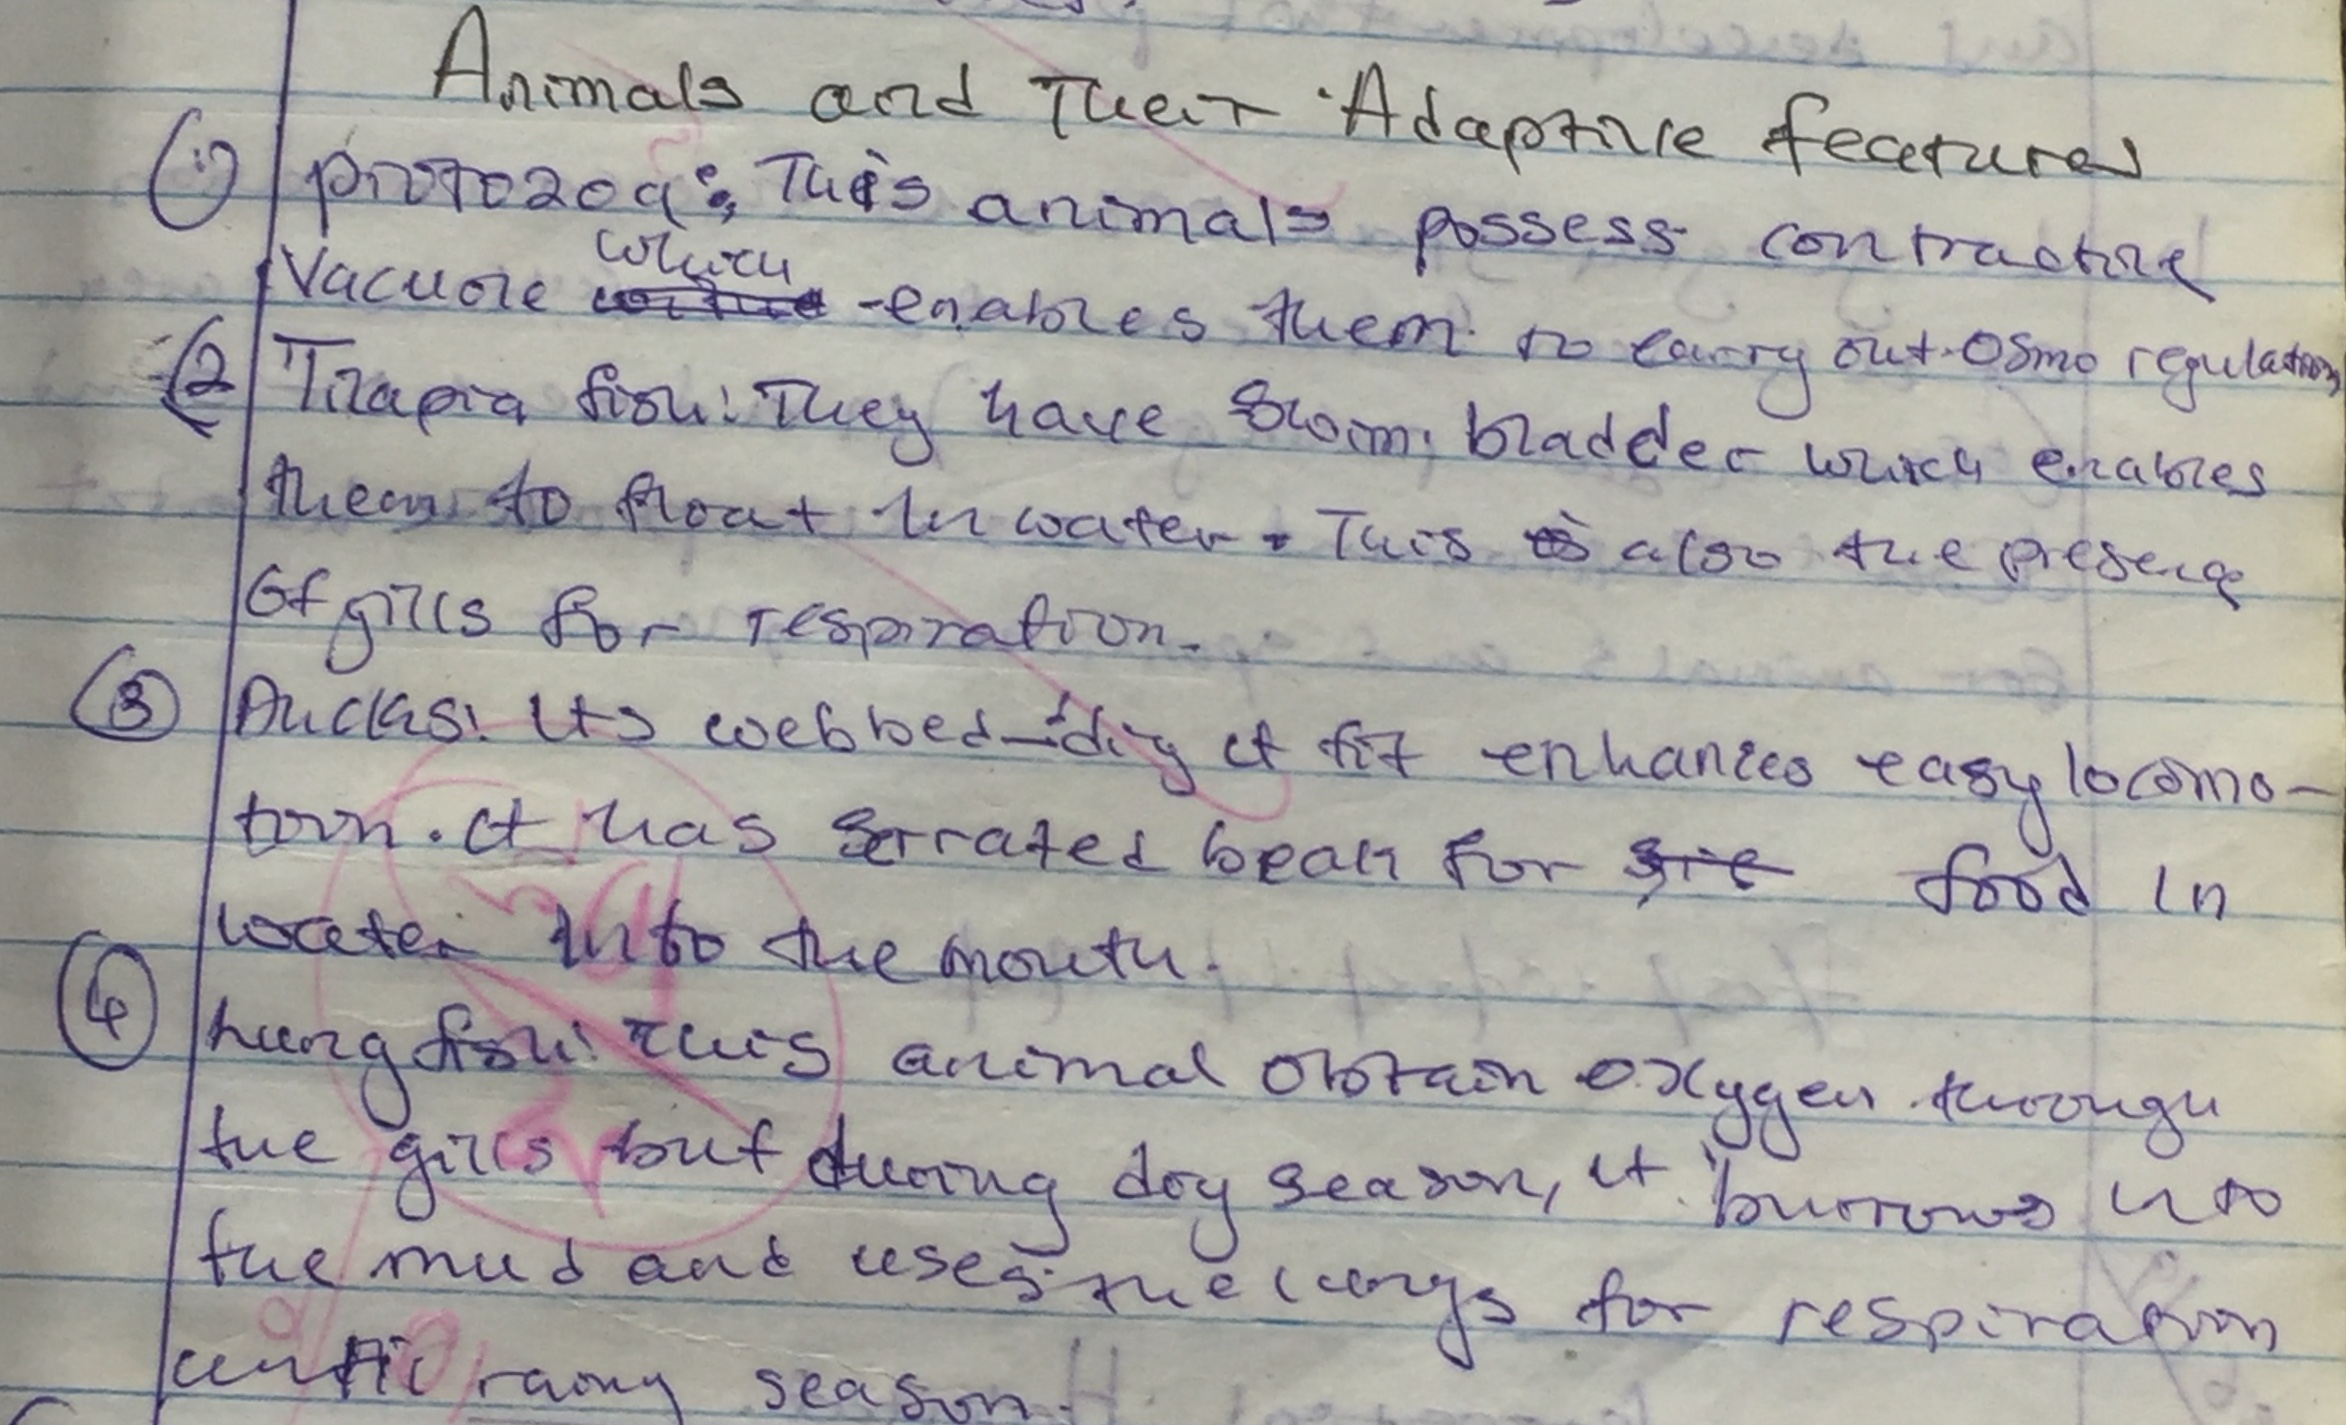 Animals and Their Adaptive features
(1) protozoa: This animals possess contractile
Vacuole which enables them to carry out Osmo regulation
(2) Tilapia fish: They have Swim bladder which enables
them to float in water. This also the presence
Of gills for respiration.
(3) Ducks: Its webbed enhances easy locomo-
tion. It has Serrated beak for food in
water into the mouth.
(4) Lung fish: This animal obtain oxygen through
the gills but during dry season, it burrows into
the mud and uses the lungs for respiration
until rainy season.